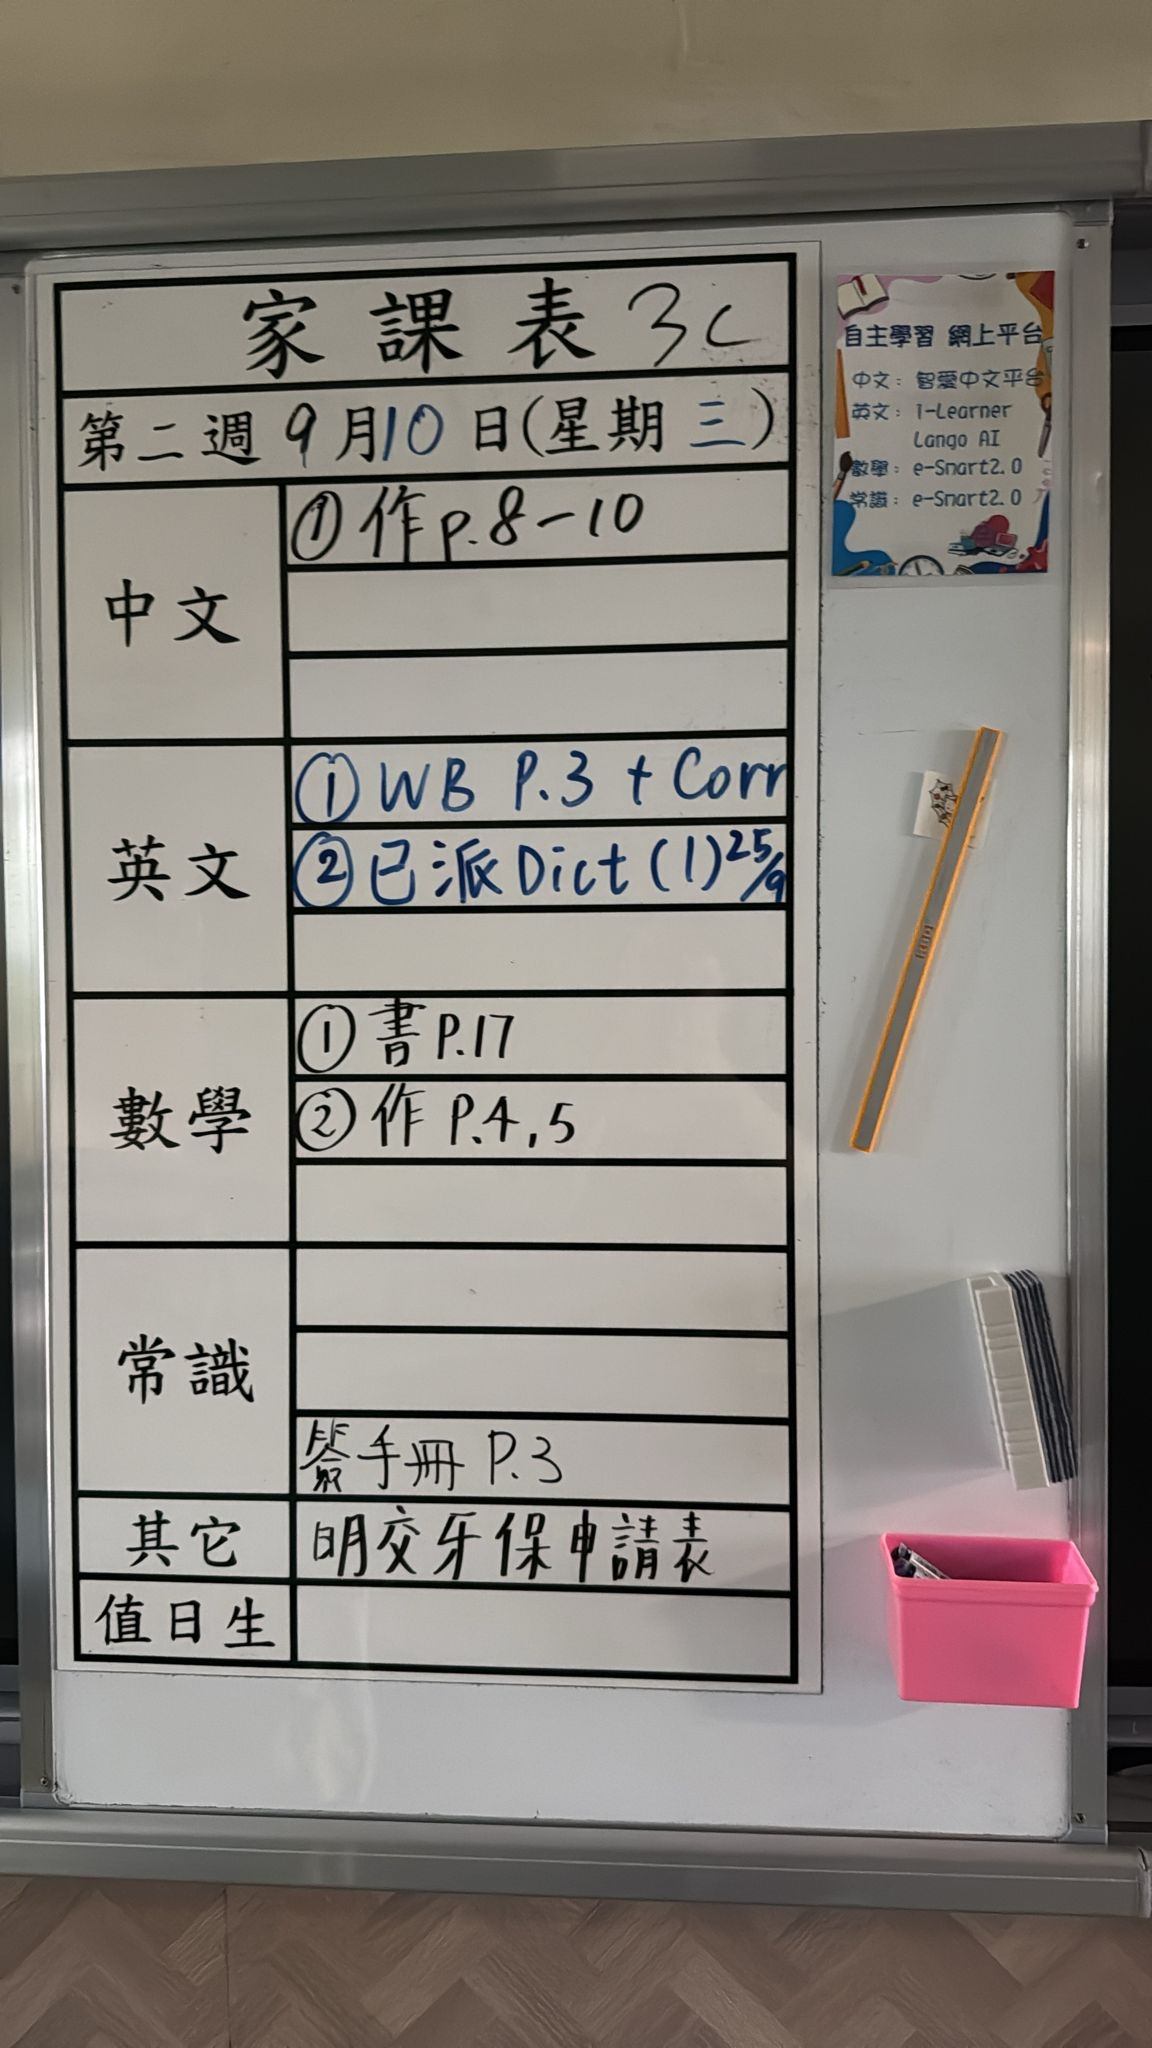 家課表 3C
第二週 9月10日(星期三)
中文
① 作 p.8-10
英文
① WB P.3 + Corr
② 已派 Dict (1) 25/9
數學
① 書 P.17
② 作 P.4,5
常識
簽手冊 P.3
其它
明交牙保申請表
值日生
自主學習 網上平台
中文：智愛中文平台
英文：i-Learner
Lango AI
數學：e-Smart2.0
常識：e-Smart2.0